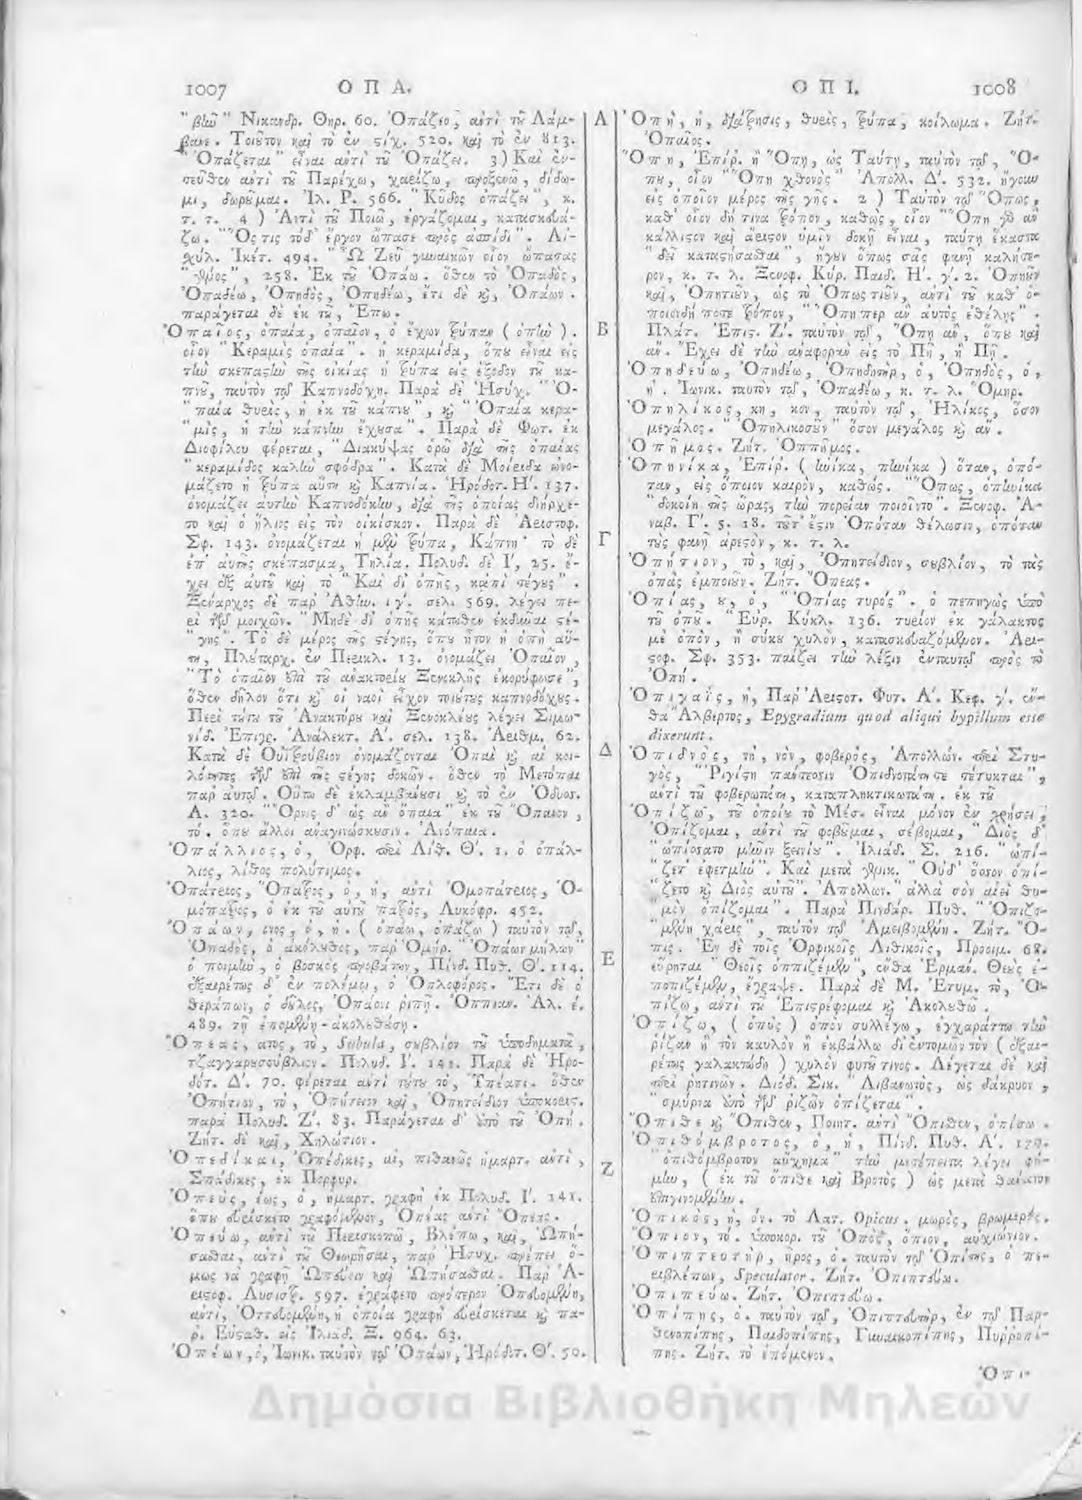 1007 Ο Π Α.
" βίῳ " Νικανδρ. Θηρ. 60. Ὀπάζεο, αντὶ τοῦ Λάμ-
βανε. Τοιοῦτον καὶ τὸ ἐν στίχ. 520. καὶ τὸ ἐν 813.
" Ὀπάζεται " εἶναι αντὶ τοῦ Ὀπάζει. 3) Καὶ ἐν-
τεῦθεν αντὶ τοῦ Παρέχω, χαρίζω, προξενῶ, δίδω-
μι, δωρῦμαι. Ἰλ. Ρ. 566. " Κῦδος ὀπάζει ", κ.
τ. τ. 4) Ἀντὶ τοῦ Ποιῶ, ἐργάζομαι, κατασκευά-
ζω. " Ὅς τις τόδ' ἔργον ὤπασε πρὸς ἀσπίδι ". Αἰ-
χύλ. Ἱκέτ. 494. " Ὦ Ζεῦ γυναικῶν οἷον ὤπασας
" γένος ", 258. Ἐκ τοῦ Ὀπάω. ὅθεν τὸ Ὀπαδὸς,
Ὀπαδέω, Ὀπηδὸς, Ὀπηδέω, ἔτι δὲ καὶ, Ὀπάων.
παράγεται δὲ ἐκ τοῦ, Ἕπω.
Ὀπαῖος, ὀπαία, ὀπαῖον, ὁ ἔχων τρύπαν (ὀπὴν).
οἷον " Κεραμὶς ὀπαία ". ἡ κεραμίδα, ὅπου εἶναι εἰς
τὴν σκεπαστὴν τῆς οἰκίας ἡ τρύπα εἰς ἔξοδον τοῦ κα-
πνοῦ, ταὐτὸν τῷ Καπνοδόχη. Παρὰ δὲ Ἡσύχ. " Ὀ-
" παία θυρὶς, ἡ ἐκ τοῦ κάπνου ", καὶ " Ὀπαία κερα-
" μὶς, ἡ τὴν κάπνην ἔχουσα ". Παρὰ δὲ Φωτ. ἐκ
Διοφίλου φέρεται, " Διακύψας ὁρῶ διὰ τῆς ὀπαίας
" κεραμίδος καλὴν σφόδρα ". Κατὰ δὲ Μοίριδα ὠνο-
μάζετο ἡ τρύπα αὕτη καὶ Καπνία. Ἡρόδοτ. Η'. 137.
ὀνομάζει αὐτὴν Καπνοδόκην, διὰ τῆς ὁποίας διήρχε-
το καὶ ὁ ἥλιος εἰς τὸν οἰκίσκον. Παρὰ δὲ Ἀριστοφ.
Σφ. 143. ὀνομάζεται ἡ μὲν τρύπα, Κάπνη· τὸ δὲ
ἐπ' αὐτῆς σκέπασμα, Τηλία. Πολυδ. δὲ Ι', 25. ἔ-
χει ἐξ αὐτοῦ καὶ τὸ " Καὶ δι' ὀπῆς, κἀπὶ τέγους ".
Ξέναρχος δὲ παρ' Ἀθην. ιγ'. σελ. 569. λέγει πε-
ρὶ τῶν μοιχῶν. " Μηδὲ δι' ὀπῆς κάτωθεν ἐκδῦναι στέ-
" γης ". Τὸ δὲ μέρος τῆς στέγης, ὅπου ἦτον ἡ ὀπὴ αὕ-
τη, Πλούταρχ. ἐν Περικλ. 13. ὀνομάζει Ὀπαῖον,
" Τὸ ὀπαῖον ἐπὶ τοῦ ἀνακτορείου Ξενοκλῆς ἐκορύφωσε",
ὅθεν δῆλον ὅτι καὶ οἱ ναοὶ εἶχον τοιούτους καπνοδόχους.
Περὶ τούτου τοῦ Ἀνακτόρου καὶ Ξενοκλέους λέγει Σιμω-
νίδ. Ἐπιγρ. Ἀνάλεκτ. Α'. σελ. 138. Ἀριθμ. 62.
Κατὰ δὲ Οὐϊτρούβιον ὀνομάζονται Ὀπαὶ καὶ αἱ κοι-
λότητες τῶν ἐπὶ τῆς στέγης δοκῶν. ὅθεν τὸ Μετόπαι
παρ' αὐτῷ. Οὕτω δὲ ἐκλαμβάνουσι καὶ τὸ ἐν Ὀδυσσ.
Α. 320. " Ὄρνις δ' ὡς ἀν' ὀπαῖα " ἐκ τοῦ Ὀπαῖον,
τό. ὅπου ἄλλοι ἀναγινώσκουσιν. Ἀνόπαια.
Ὀπάλλιος, ὁ, Ὀρφ. περὶ Λίθ. Θ'. 1. ὁ ὀπάλ-
λιος, λίθος πολύτιμος.
Ὀπάτριος, Ὄπατρος, ὁ, ἡ, αντὶ Ὁμοπάτριος, Ὁ-
μόπατρος, ὁ ἐκ τοῦ αὐτοῦ πατρὸς, Λυκόφρ. 452.
Ὀπάων, ονος, ὁ, ἡ. (ὀπάω, ὀπάζω) ταὐτὸν τῷ,
Ὀπαδὸς, ὁ ἀκόλουθος, παρ' Ὁμήρ. " Ὀπάων μήλων "
ὁ ποιμὴν, ὁ βοσκὸς προβάτων, Πίνδ. Πυθ. Θ'. 114.
ἐξαιρέτως δ' ἐν πολέμῳ, ὁ Ὁπλοφόρος. Ἔτι δὲ ὁ
θεράπων, ὁ δοῦλος, Ὀπάονι ῥιπῇ. Ὀππιαν. Ἁλ. έ.
489. τῇ ἑπομένῃ - ἀκολουθούσῃ.
Ὄπεας, ατος, τὸ, Subula, σουβλίον τοῦ ὑποδηματᾶ,
τζαγγαροσούβλιον. Πολυδ. Ι'. 141. Παρὰ δὲ Ἡρο-
δότ. Δ'. 70. φέρεται αντὶ τούτου τὸ, Ὑπέατι. ὅθεν
Ὀπήτιον, τὸ, Ὀπήτειον καὶ, Ὀπητείδιον ὑποκορις.
παρὰ Πολυδ. Ζ'. 83. Παράγεται δ' ἀπὸ τοῦ Ὀπή.
Ζήτ. δὲ καὶ, Χηλώτιον.
Ὀπεδίκαι, Ὀπέδικες, αἱ, πιθανῶς ἡμαρτ. αντὶ,
Σπάδικες, ἐκ Πορφυρ.
Ὀπεὺς, έως, ὁ, ἡμαρτ. γραφὴ ἐκ Πολυδ. Ι'. 141.
ὅπου εὑρίσκετο γραφόμενον, Ὀπέας αντὶ Ὀπεῖς.
Ὀπεύω, αντὶ τοῦ Περισκοπῶ, Βλέπω, καὶ, Ὠπή-
σασθαι, αντὶ τοῦ Θεωρῆσαι, παρ' Ἡσυχ. πρέπει ὅ-
μως νὰ γραφῇ Ὠπεύειν καὶ Ὠπήσασθαι. Παρ' Ἀ-
ριστοφ. Λυσιστρ. 597. ἐγράφετο πρότερον Ὀπευομένη,
αντὶ, Ὀττευομένη, ἡ ὁποία γραφὴ εὑρίσκεται καὶ πα-
ρ. Εὐσταθ. εἰς Ἰλιάδ. Ξ. 964. 63.
Ὀπέων, ὁ, Ἰωνικ. ταὐτὸν τῷ Ὀπάων, Ἡρόδοτ. Θ'. 50.
Α
Β
Γ
Δ
Ε
Ζ
Ο Π Ι. 1008
Ὀπὴ, ἡ, διάτρησις, θυρὶς, τρύπα, κοίλωμα. Ζήτ.
Ὀπαῖος.
Ὅπη, Ἐπίρ. ἢ Ὅπῃ, ὡς Ταύτῃ, ταὐτὸν τῷ, Ὅ-
που, οἷον " Ὅπη χθονὸς " Ἀπολλ. Δ'. 532. ἤγουν
εἰς ὁποῖον μέρος τῆς γῆς. 2) Ταὐτὸν τῷ Ὅπως,
καθ' οἷον δή τινα τρόπον, καθὼς, οἷον " Ὅπη γὰρ ἂν
κάλλιστον καὶ ἄριστον ὑμῖν δοκῇ εἶναι, ταύτῃ ἕκαστα
" δεῖ καταστήσασθαι ", ἤγουν ὅπως σᾶς φανῇ καλήτε-
ρον, κ. τ. λ. Ξενοφ. Κύρ. Παιδ. Η'. γ'. 2. Ὁπηοῦν
καὶ, Ὁπητιοῦν, ὡς τὸ Ὁπωςτιοῦν, αντὶ τοῦ καθ' ὁ-
ποιονδήποτε τρόπον, " Ὅπηπερ ἂν αὐτὸς ἐθέλῃς ".
Πλάτ. Ἐπιστ. Ζ'. ταὐτὸν τῷ, Ὅπη ἂν, ὅπου καὶ
ἄν. Ἔχει δὲ τὴν ἀναφορὰν εἰς τὸ Πῆ, ἢ Πῇ.
Ὀπηδεύω, Ὀπηδέω, Ὀπηδητὴρ, ὁ, Ὀπηδὸς, ὁ,
ἡ. Ἰωνικ. ταὐτὸν τῷ, Ὀπαδέω, κ. τ. λ. Ὁμηρ.
Ὁπηλίκος, κη, κον, ταὐτὸν τῷ, Ἡλίκος, ὅσον
μεγάλος. " Ὁπηλικοσοῦν " ὅσον μεγάλος καὶ ἄν.
Ὀπῆμος. Ζήτ. Ὁππῆμος.
Ὁπηνίκα, Ἐπίρ. (ἡνίκα, πηνίκα) ὅταν, ὁπό-
ταν, εἰς ὁποῖον καιρὸν, καθώς. " Ὅπως, ὁπηνίκα
" δοκοίη τῆς ὥρας, τὴν πορείαν ποιοῖντο ". Ξενοφ. Ἀ-
ναβ. Γ'. 5. 18. τουτέστιν Ὁπόταν θέλωσιν, ὁπόταν
τοὺς φανῇ ἀρεστὸν, κ. τ. λ.
Ὀπήτιον, τὸ, καὶ, Ὀπητείδιον, σουβλίον, τὸ τὰς
ὀπὰς ἐμποιοῦν. Ζήτ. Ὄπεας.
Ὀπίας, ου, ὁ, " Ὀπίας τυρός ". ὁ πεπηγὼς ἀπὸ
τοῦ ὀποῦ. " Εὐρ. Κύκλ. 136. τυρίον ἐκ γάλακτος
μὲ ὀπὸν, ἢ σύκου χυλὸν, κατασκευαζόμενον. Ἀρι-
στοφ. Σφ. 353. παίζει τὴν λέξιν ἐνταυτῷ πρὸς τὸ
Ὀπή.
Ὀπιγαῒς, ἡ, Παρ' Ἀριστοτ. Φυτ. Α'. Κεφ. γ'. ἔν-
θα Ἄλβερτος, Epygradium quod aliqui hypillum esse
dixerunt.
Ὀπιδνὸς, νὴ, νὸν, φοβερὸς, Ἀπολλών. περὶ Στυ-
γὸς, " Ῥιγίστη πάντεσσιν Ὀπιδνοτάτη τε τέτυκται",
αντὶ τοῦ φοβερωτάτη, καταπληκτικωτάτη. ἐκ τοῦ
Ὀπίζω, τοῦ ὁποίου τὸ Μέσ. εἶναι μόνον ἐν χρήσει,
Ὀπίζομαι, αντὶ τοῦ φοβοῦμαι, σέβομαι, " Διὸς δ'
" ὠπίσατο μῆνιν ξεινίου". Ἰλιάδ. Σ. 216. " ὠπί-
" ζετ' ἐφετμήν". Καὶ μετὰ γενικ. " Οὐδ' ὅσον ὀπί-
" ζετο καὶ Διὸς αὐτοῦ". Ἀπολλων. " ἀλλὰ σὸν αἰεὶ θυ-
" μὸν ὀπίζομαι". Παρὰ Πινδάρ. Πυθ. " Ὀπιζο-
" μένη χάρις", ταὐτὸν τῷ Ἀμειβομένη. Ζήτ. Ὄ-
πις. Ἐν δὲ τοῖς Ὀρφικοῖς Λιθικοῖς, Προοιμ. 68.
εὕρηται " Θεοῖς ὀππιζέμεν ", ἔνθα Ἕρμαν. Θεοὺς ἐ-
ποπιζέμεν, ἔγραψε. Παρὰ δὲ Μ. Ἐτυμ. τὸ, Ὀ-
πίζω, αντὶ τοῦ Ἐπιστρέφομαι καὶ Ἀκολουθῶ.
Ὀπίζω, (ὀπὸς) ὀπὸν συλλέγω, ἐγχαράττω τὴν
ῥίζαν ἢ τὸν καυλὸν ἢ ἐκβάλλω δι' ἐντομῶν τὸν (ἐξαι-
ρέτως γαλακτώδη) χυλὸν φυτοῦ τινος. Λέγεται δὲ καὶ
περὶ ῥητινῶν. Διόδ. Σικ. " Λιβανωτὸς, ὡς δάκρυον,
" σμύρνα ἀπὸ τῶν ῥιζῶν ὀπίζεται ".
Ὄπιθε καὶ Ὄπιθεν, Ποιητ. αντὶ Ὄπισθεν, ὀπίσω.
Ὀπιθόμβροτος, ὁ, ἡ, Πίνδ. Πυθ. Α'. 179.
" ὀπιθόμβροτον αὔχημα " τὴν μετέπειτα λέγει φή-
μην, (ἐκ τοῦ ὄπιθε καὶ Βροτὸς) ὡς μετὰ θάνατον
ἐπιγινομένην.
Ὀπικὸς, ὴ, όν. τὸ Λατ. Opicus. μωρὸς, βρωμερός.
Ὄπιον, τὸ. ὑποκορ. τοῦ Ὀπὸς, ὄπιον, ἀφιώνιον.
Ὀπιπτευτὴρ, ῆρος, ὁ. ταὐτὸν τῷ Ὀπίπης, ὁ πε-
ριβλέπων, Speculator. Ζήτ. Ὀπιπτεύω.
Ὀπιπεύω. Ζήτ. Ὀπιπτεύω.
Ὀπίπης, ὁ. ταὐτὸν τῷ, Ὀπιπτευτὴρ, ἐν τῷ Παρ-
θενοπίπης, Παιδοπίπης, Γυναικοπίπης, Πυρροπί-
πης. Ζήτ. τὸ ἑπόμενον.
Ὀπι-
Δημόσια Βιβλιοθήκη Μηλεών